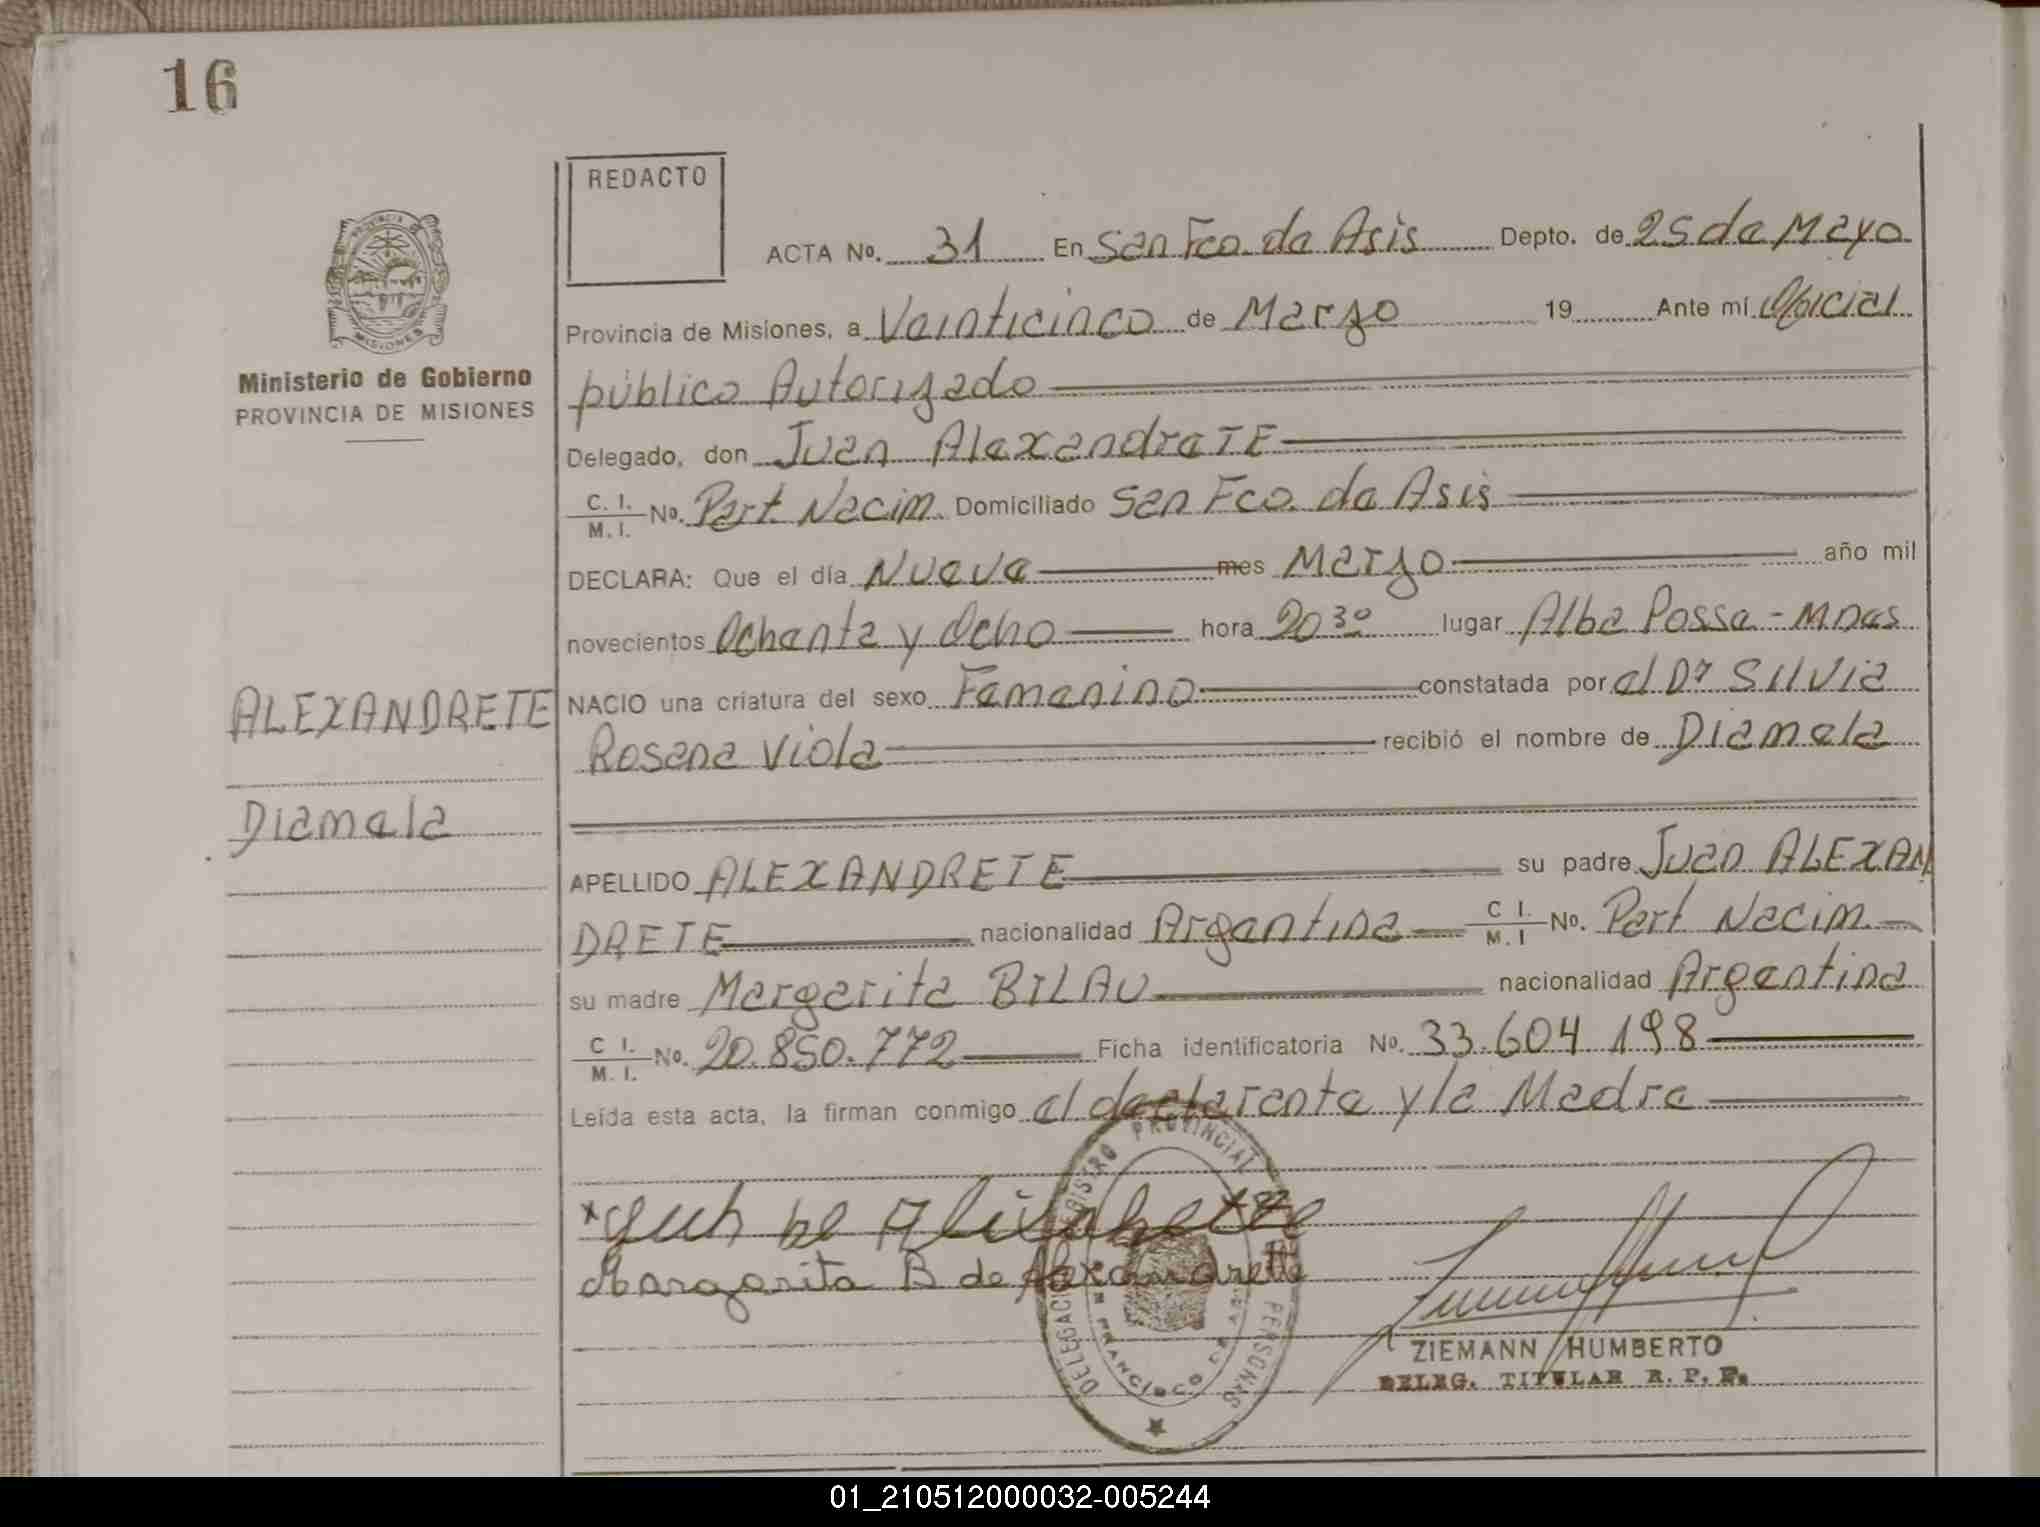 16
REDACTO
ACTA No. 31 En San Fco. de Asis Depto. de 25 de Mayo
Provincia de Misiones, a Veinticinco de Marzo 19 Ante mí Oficial
público Autorizado
Delegado, don Juan AlexandreTE
C. I. / M. I. No. Part. Nacim. Domiciliado San Fco. de Asis
DECLARA: Que el día Nueve mes Marzo año mil
novecientos Ochenta y Ocho hora 20 30 lugar Alba Posse - Mnes
NACIO una criatura del sexo Femenino constatada por el Dr Silvia
Rosana Viola recibió el nombre de Diamela
APELLIDO ALEXANDRETE su padre Juan ALEXAN
DRETE nacionalidad Argentina C I. / M. I No. Part Nacim.
su madre Margarita BILAU nacionalidad Argentina
C I. / M. I. No. 20.850.772 Ficha identificatoria No. 33.604.198
Leída esta acta, la firman conmigo el declarante y la Madre
Margarita B de Alexandrette
ZIEMANN HUMBERTO
DELEG. TITULAR R. P. P.
PROVINCIA
MISIONES
Ministerio de Gobierno
PROVINCIA DE MISIONES
ALEXANDRETE
Diamela
REGISTRO PROVINCIAL PERSONAS
DELEGACI
FRANCISCO
01_210512000032-005244